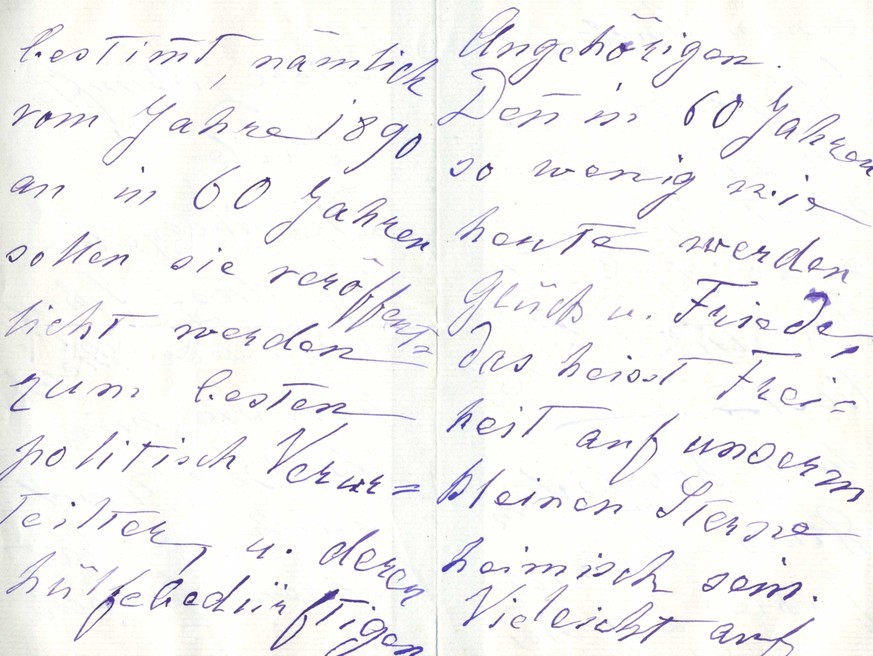 bestim̄t, nämlich
vom Jahre 1890
an in 60 Jahren
sollen sie veröffent=
licht werden
zum besten
politisch Verur=
teilter, u. deren
hülfebedürftigen
Angehörigen.
Den̄ in 60 Jahren
so wenig wie
heute werden
Glück u. Friede,
das heisst Frei=
heit auf unserm
kleinen Sterne
heimisch sein.
Vieleicht auf